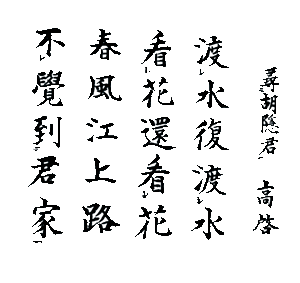 尋胡隱君 高啓
渡水復渡水
看花還看花
春風江上路
不覺到君家